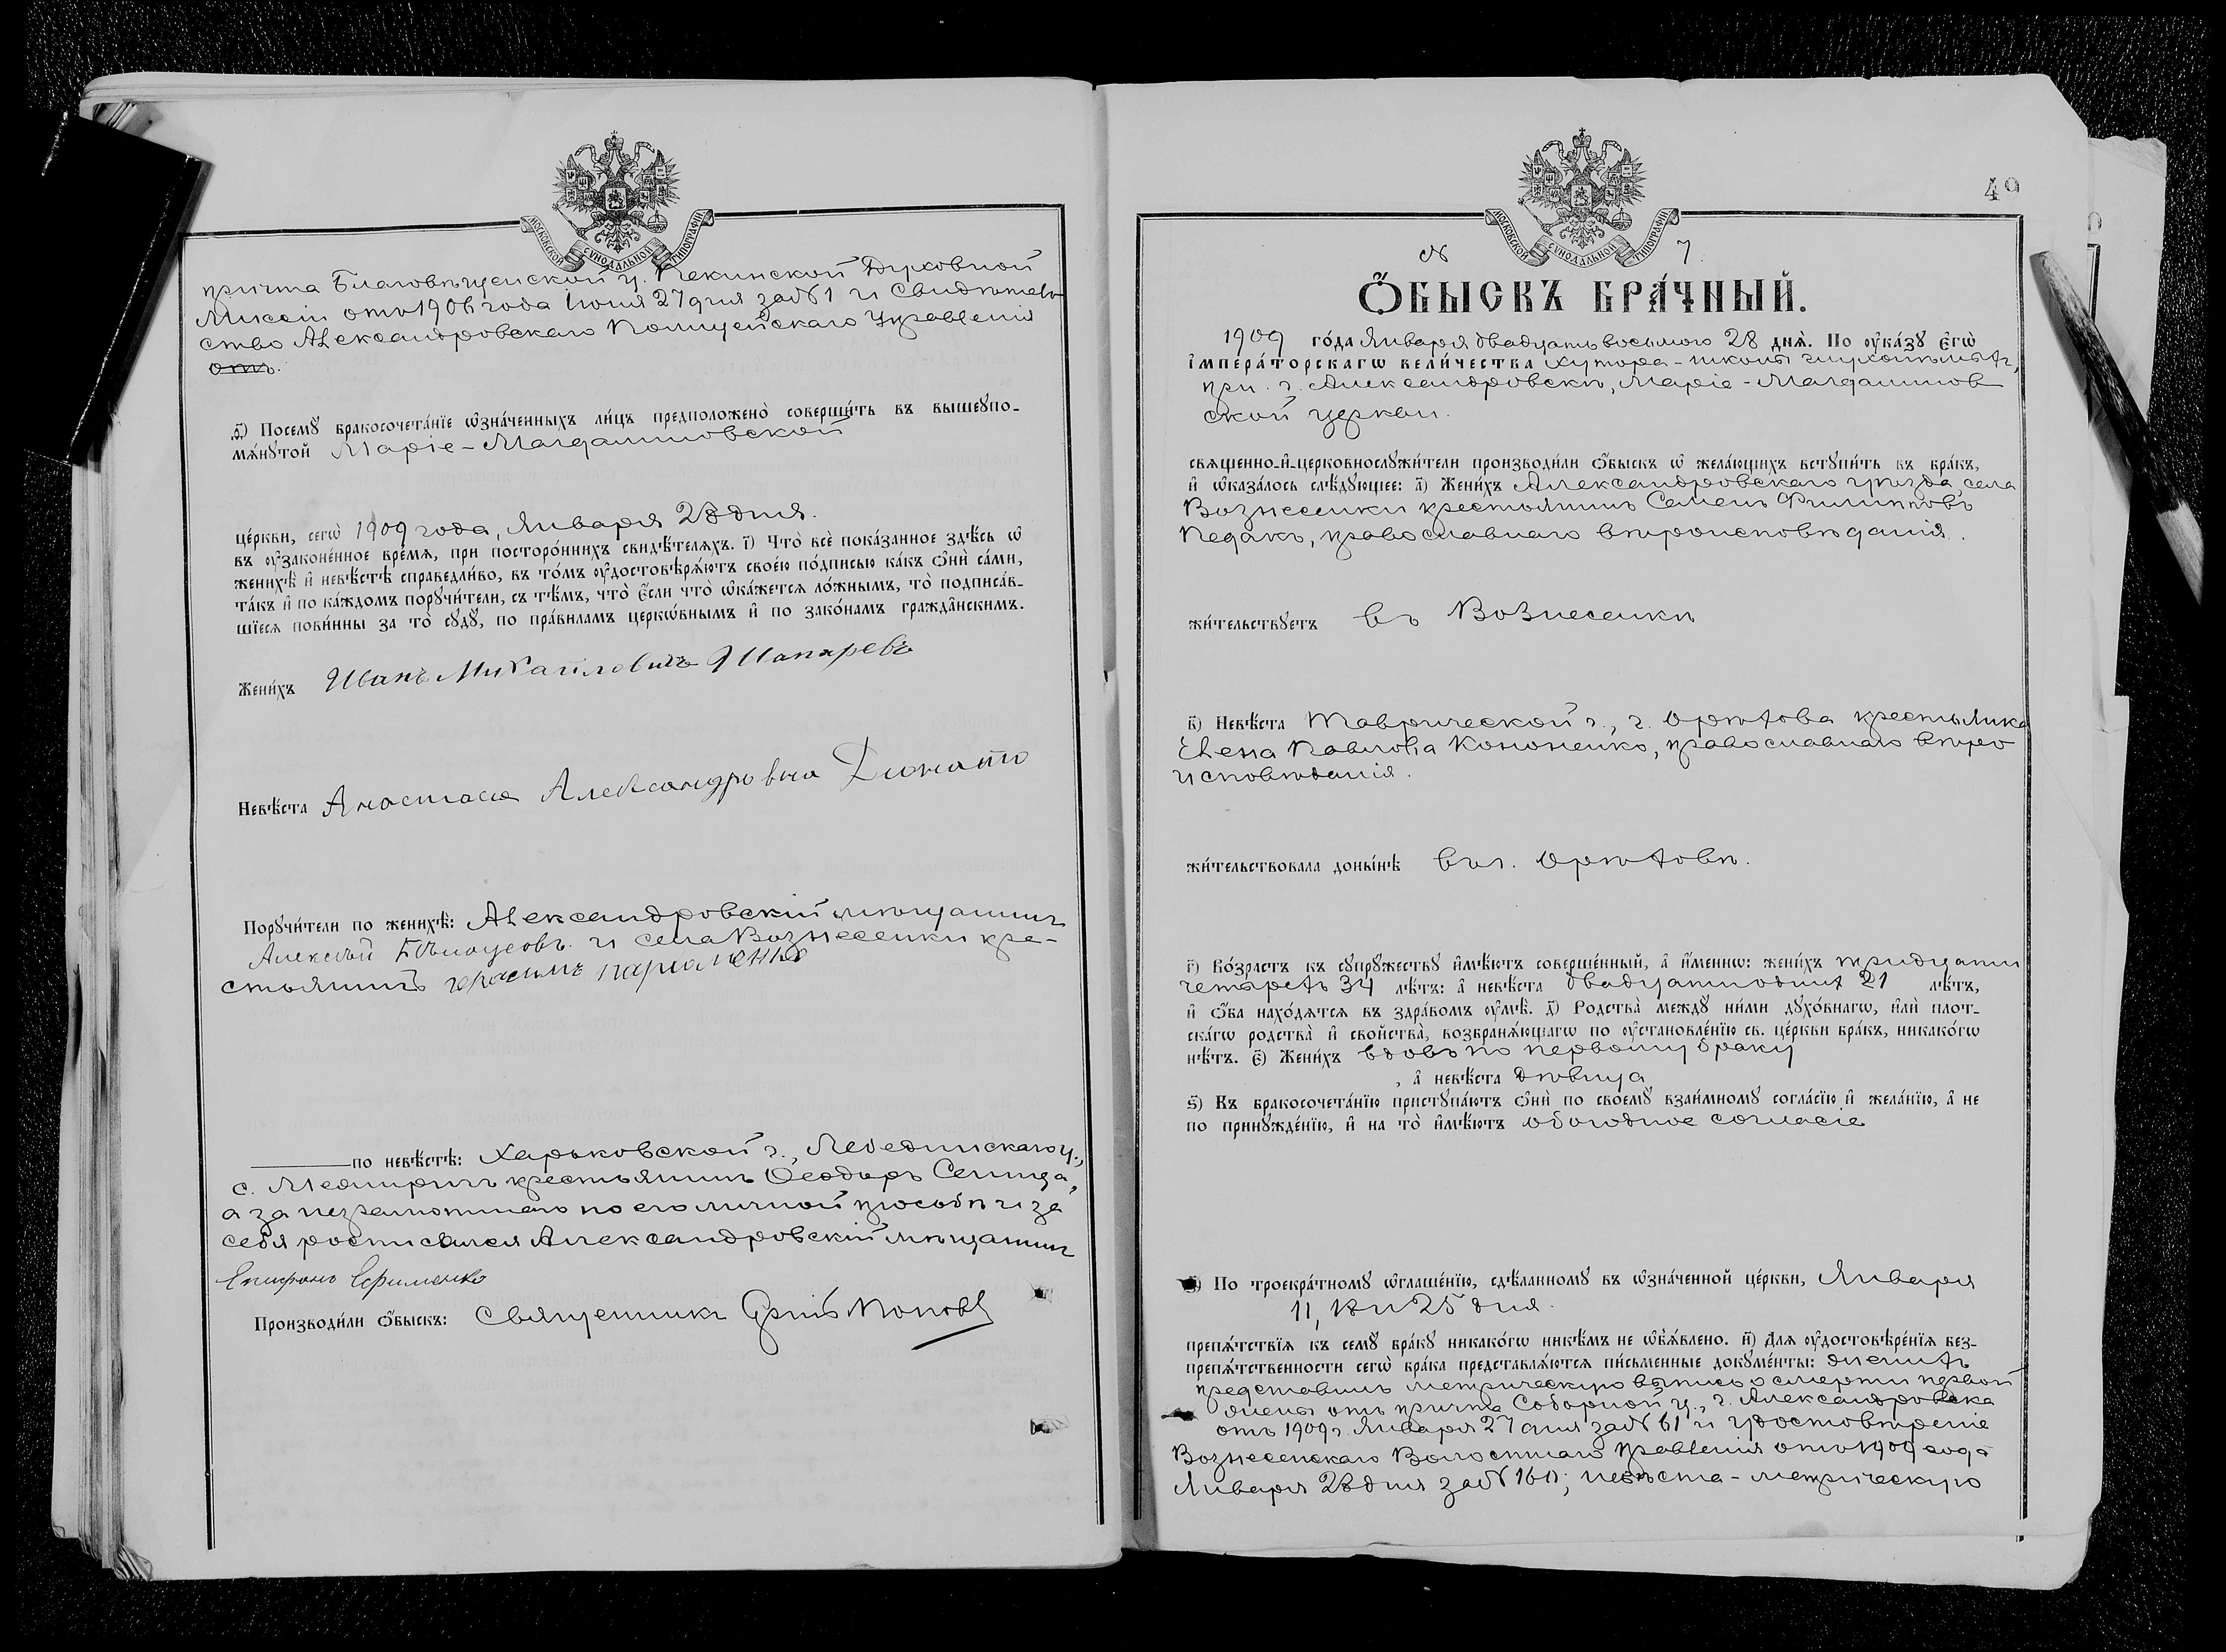 МОСКОВСКОЙ СѴНОДАЛЬНОЙ ТИПОГРАФІИ
причта Благовѣщенской ц. Пекинской Духовной
Миссіи отъ 1906 года Іюня 27 дня за № 1 и Свидѣтель
ство Александровскаго Полицейскаго Управленія
отъ.
д҃) Посемꙋ бракосочета́нїе ѡзна́ченныхъ ли́цъ предположено̀ соверши́ть въ вышеꙋпо-
мѧ́нꙋтой Маріе-Магдалиновской
це́ркви, сегѡ̀ 1909 года, Января 28 дня.
въ ᲂу҆законе́нное вре́мѧ, при посторо́ннихъ свидѣ́телѧхъ. і҃) Что̀ всѐ пока́занное здѣ́сь ѡ҆
женихѣ̀ и҆ невѣ́стѣ справедли́во, въ то́мъ ᲂу҆достовѣрѧ́ютъ свое́ю по́дписью ка́къ ѻ҆нѝ са́ми,
та́къ и҆ по ка́ждомъ порꙋчи́тели, съ тѣ́мъ, что̀ є҆́сли что̀ ѡ҆ка́жетсѧ ло́жнымъ, то̀ подписа́в-
шїесѧ пови́нны за то̀ сꙋдꙋ̀, по пра́виламъ церкѡ́внымъ и҆ по зако́намъ гражда́нскимъ.
Жени́хъ Иванъ Михаиловичъ
Невѣ́ста Анастасія Александровна
Порꙋчи́тели по женихѣ̀: Александровскій мѣщанинъ
Алексѣй Бѣлоусовъ и села Вознесенки кре-
стьянинъ герасимъ
по невѣ́стѣ: Харьковской г., Лебединскаго у.,
с. Межиричъ крестьянинъ Ѳеодоръ
а за неграмотнаго по его личной просьбѣ и за
себя росписался Александровскій мѣщанинъ
Епифанъ Ефименко
Производи́ли ѻ҆́быскъ: Священникъ Поповъ
49
МОСКОВСКОЙ СѴНОДАЛЬНОЙ ТИПОГРАФІИ
№ 7.
Ѻ҆́БЫСКЪ БРА́ЧНЫЙ.
1909 го́да Января двадцать восьмого 28 днѧ̀. По ᲂу҆ка́зꙋ Є҆гѡ̀
І҆мпера́торскагѡ вели́чества хутора-школы
при г. Александровскѣ, Маріе-Магдалинов
ской церкви.
свѧщенно-и҆-церковнослꙋжи́тели производи́ли ѻ҆́быскъ ѡ҆ жела́ющихъ встꙋпи́ть въ бра́къ,
и҆ ѡ҆каза́лось слѣ́дꙋющее: а҃) Жени́хъ Александровскаго уѣзда, села
Вознесенки крестьянинъ Семенъ Филипповъ
Педакъ, православнаго вѣроисповѣданія.
жи́тельствꙋетъ въ Вознесенкѣ
в҃) Невѣ́ста Таврической г., г. Орѣхова крестьянка
Елена Павлова Кононенко, православнаго вѣро
исповѣданія.
жи́тельствовала доны́нѣ въ г. Орѣховѣ.
г҃) Во́зрастъ къ сꙋпрꙋ́жествꙋ и҆мѣ́ютъ соверше́нный, а҆ и҆́меннѡ: жени́хъ тридцати
четырехъ 34 лѣ́тъ: а҆ невѣ́ста двадцати одна 21 лѣ́тъ,
и҆ ѻ҆́ба нахо́дѧтсѧ въ здра́вомъ ᲂу҆мѣ̀. д҃) Родства̀ междꙋ ни́ми дꙋхо́внагѡ, и҆лѝ плот-
ска́гѡ родства̀ и҆ сво́йства̀, возбранѧ́ющагѡ по ᲂу҆становле́нїю св. це́ркви бра́къ, никако́гѡ
нѣ́тъ. є҃) Жени́хъ вдовъ по первому браку
, а҆ невѣ́ста дѣвица
ѕ҃) Къ бракосочета́нїю пристꙋпа́ютъ ѻ҆нѝ по своемꙋ̀ взаи́мномꙋ согла́сїю и҆ жела́нїю, а҆ не
по принꙋжде́нїю, и҆ на то̀ и҆мѣ́ютъ обоюдное согласіе
з҃) По троекра́тномꙋ ѡ҆глаше́нїю, сдѣ́ланномꙋ въ ѡ҆зна́ченной це́ркви, Января
11, 18 и 25 дня.
препѧ́тствїѧ къ семꙋ̀ бра́кꙋ никако́гѡ никѣ́мъ не ѡ҆б̾ѧ́влено. и҃) Для ᲂу҆достовѣре́нїѧ без-
препѧ́тственности сегѡ̀ бра́ка представлѧ́ютсѧ пи́сьменные докꙋме́нты: женихъ
представилъ метрическую выпись о смерти первой
жены отъ причта Соборной ц., г. Александровска
отъ 1909 г. Января 27 дня за № 61 и удостовѣреніе
Вознесенскаго Волостнаго Правленія отъ 1909 года
Января 28 дня за № 160; невѣста - метрическую